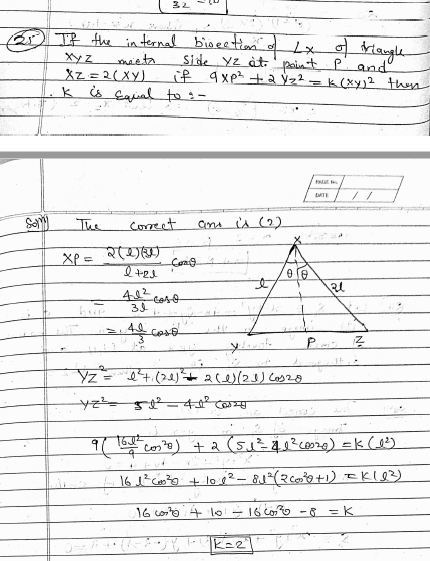 32
35 If the internal bisection of ∠X of triangle
XYZ meets side YZ at point P and
XZ = 2(XY) if 9XP² + 2YZ² = K(XY)² then
K is equal to :-
PAGE No.
DATE / /
Solⁿ The correct ans is (2)
XP = 2(l)(2l) / l+2l cosθ
= 4l² / 3l cosθ
= 4l / 3 cosθ
X
θ θ
l 2l
Y P Z
YZ² = l² + (2l)² - 2(l)(2l) cos2θ
YZ² = 5l² - 4l² cos2θ
9(16l²/9 cos²θ) + 2(5l² - 4l² cos2θ) = K(l²)
16l² cos²θ + 10l² - 8l²(2cos²θ+1) = K(l²)
16 cos²θ + 10 - 16cos²θ - 8 = K
K = 2